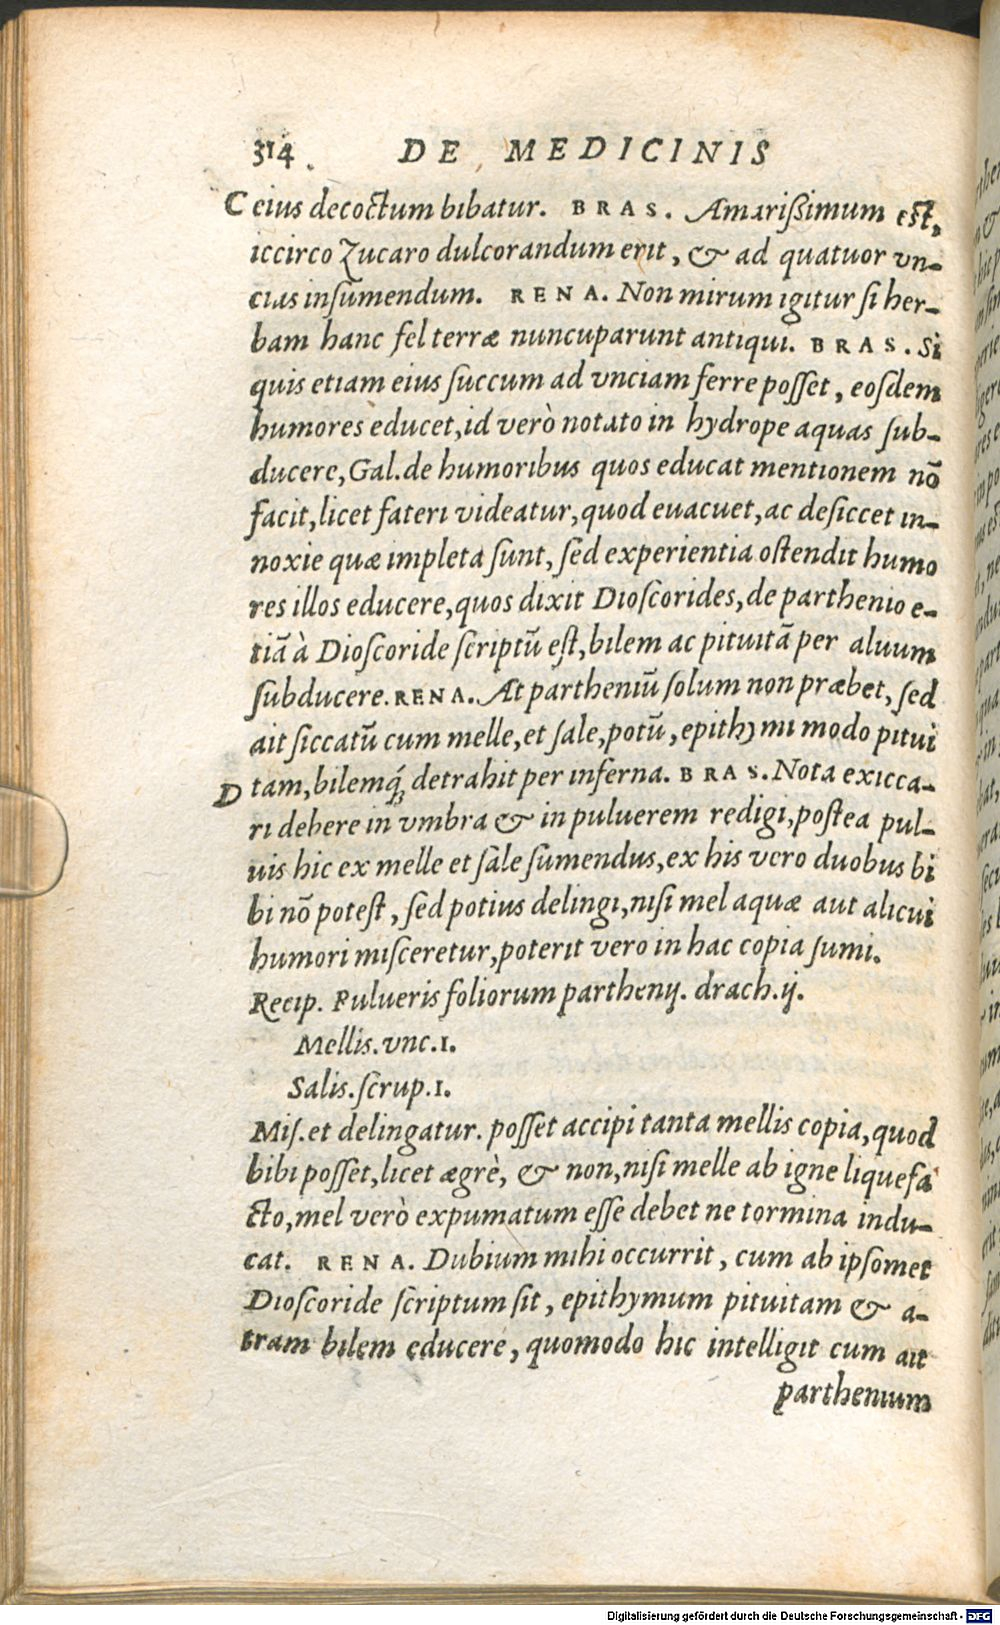 314 DE MEDICINIS
C eius decoctum bibatur. BRAS. Amarißimum est,
iccirco Zucaro dulcorandum erit, & ad quatuor vn-
cias insumendum. RENA. Non mirum igitur si her-
bam hanc fel terræ nuncuparunt antiqui. BRAS. Si
quis etiam eius succum ad vnciam ferre posset, eosdem
humores educet, id verò notato in hydrope aquas sub-
ducere, Gal. de humoribus quos educat mentionem nō
facit, licet fateri videatur, quod euacuet, ac desiccet in-
noxie quæ impleta sunt, sed experientia ostendit humo
res illos educere, quos dixit Dioscorides, de parthenio e-
tiã à Dioscoride scriptũ est, bilem ac pituitã per aluum
subducere. RENA. At partheniũ solum non præbet, sed
ait siccatũ cum melle, et sale, potũ, epithymi modo pitui
D tam, bilemq́; detrahit per inferna. BRAS. Nota exicca-
ri debere in vmbra & in puluerem redigi, postea pul-
uis hic ex melle et sale sumendus, ex his vero duobus bi
bi nō potest, sed potius delingi, nisi mel aquæ aut alicui
humori misceretur, poterit vero in hac copia sumi.
Recip. Pulueris foliorum parthenij. drach. ij.
Mellis. vnc. 1.
Salis. scrup. 1.
Mis. et delingatur. posset accipi tanta mellis copia, quod
bibi posset, licet ægrè, & non, nisi melle ab igne liquefa
cto, mel verò expumatum esse debet ne tormina indu-
cat. RENA. Dubium mihi occurrit, cum ab ipsomet
Dioscoride scriptum sit, epithymum pituitam & a-
tram bilem educere, quomodo hic intelligit cum ait
parthenium
Digitalisierung gefördert durch die Deutsche Forschungsgemeinschaft - DFG